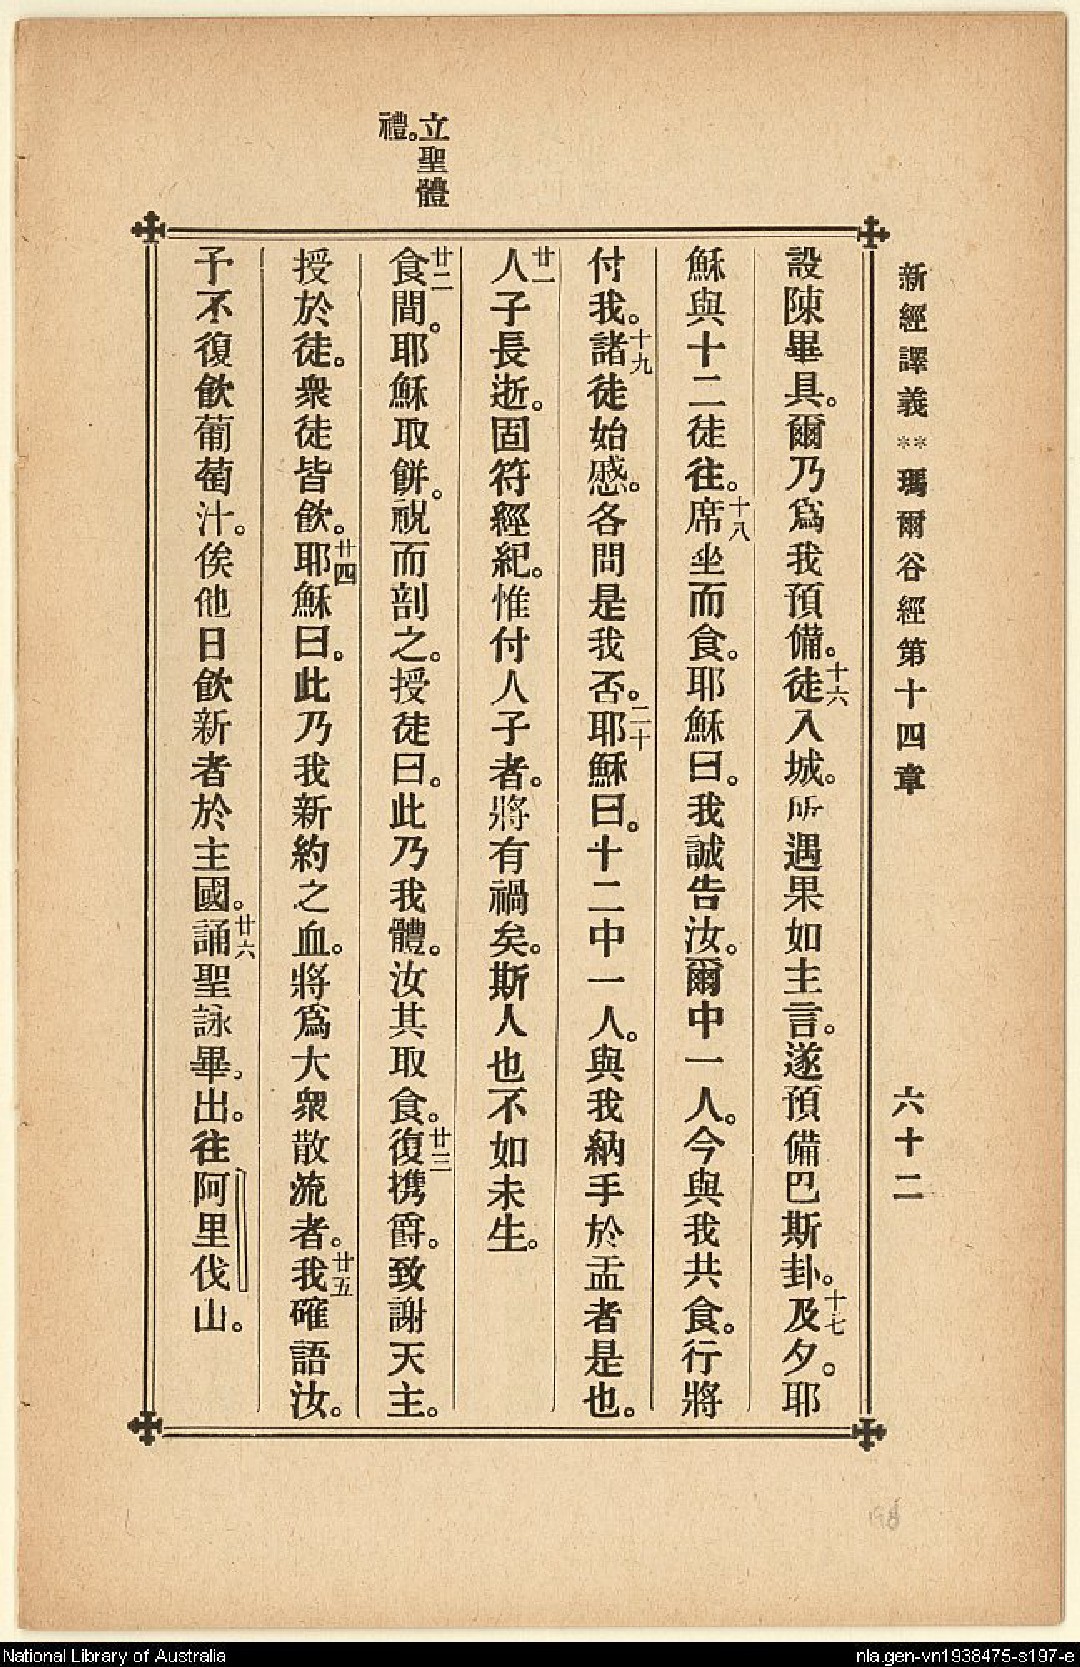 新經譯義**瑪爾谷經第十四章 六十二
設陳畢具。爾乃爲我預備。十六徒入城。所遇果如主言。遂預備巴斯卦。十七及夕。耶
穌與十二徒往。十八席坐而食。耶穌曰。我誠告汝。爾中一人。今與我共食。行將
付我。十九諸徒始慼。各問是我否。二十耶穌曰。十二中一人。與我納手於盂者是也。
廿一人子長逝。固符經紀。惟付人子者。將有禍矣。斯人也不如未生。
立聖體
禮。
廿二食間。耶穌取餅。祝而剖之。授徒曰。此乃我體。汝其取食。廿三復携爵。致謝天主。
授於徒。衆徒皆飮。廿四耶穌曰。此乃我新約之血。將爲大衆散流者。廿五我確語汝。
予不復飮葡萄汁。俟他日飮新者於主國。廿六誦聖詠畢。出。往阿里伐山。
National Library of Australia
nla.gen-vn1938475-s197-e